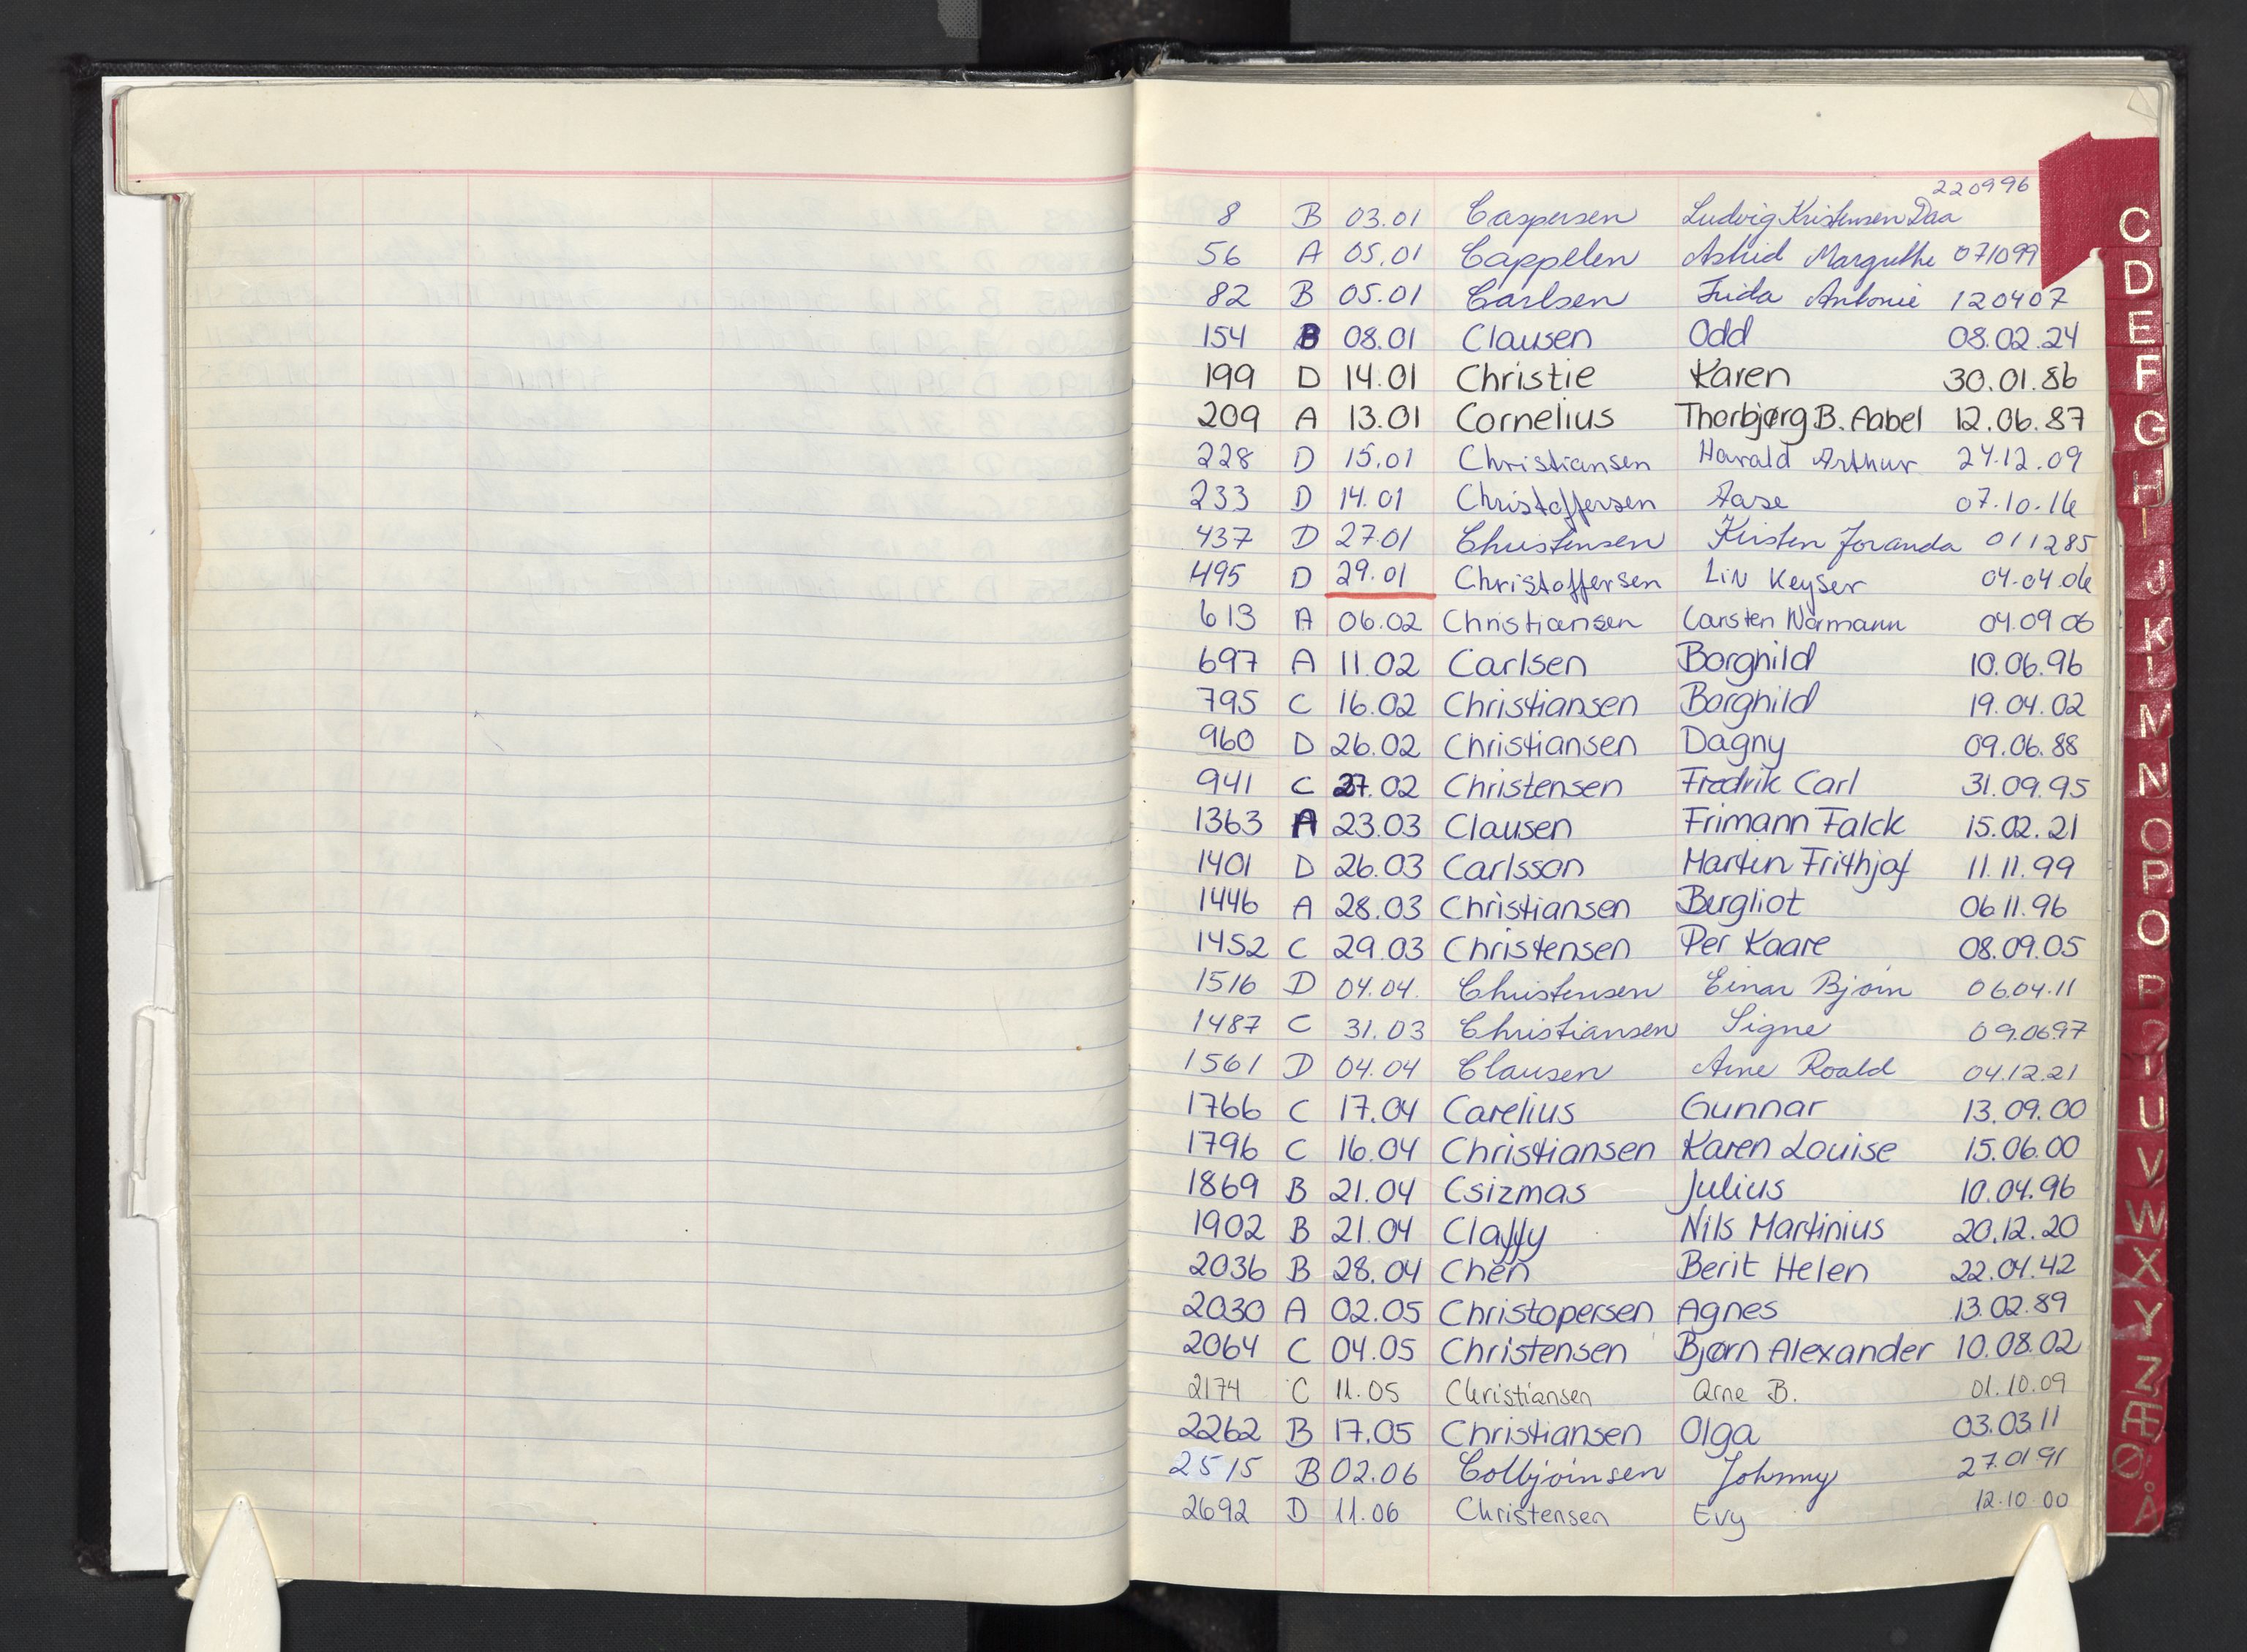 220996
8 B 03.01 Caspersen Ludvig Kristensen Daa
56 A 05.01 Cappelen Astrid Margrethe 071099
82 B 05.01 Carlsen Frida Antonie 120407
154 B 08.01 Clausen Odd 08.02.24
199 D 14.01 Christie Karen 30.01.86
209 A 13.01 Cornelius Thorbjørg B. Aabel 12.06.87
228 D 15.01 Christiansen Harald Arthur 24.12.09
233 D 14.01 Christoffersen Aase 07.10.16
437 D 27.01 Christensen Kirsten Joranda 011285
495 D 29.01 Christoffersen Lin Keyser 04.04.06
613 A 06.02 Christiansen Carsten Normann 04.09 06
697 A 11.02 Carlsen Borghild 10.06.96
795 C 16.02 Christiansen Borghild 19.04.02
960 D 26.02 Christiansen Dagny 09.06.88
941 C 27.02 Christensen Fredrik Carl 31.09.95
1363 A 23.03 Clausen Frimann Falck 15.02.21
1401 D 26.03 Carlsson Martin Frithjof 11.11.99
1446 A 28.03 Christiansen Bergliot 06.11.96
1452 C 29.03 Christensen Per Kaare 08.09.05
1516 D 04.04. Christensen Einar Bjørn 06.04.11
1487 C 31.03 Christiansen Signe 09.0697
1561 D 04.04 Clausen Arne Roald 04.12.21
1766 C 17.04 Carelius Gunnar 13.09.00
1796 C 16.04 Christiansen Karen Louise 15.06.00
1869 B 21.04 Csizmas Julius 10.04.96
1902 B 21.04 Claffy Nils Martinius 20.12.20
2036 B 28.04 Chen Berit Helen 22.04.42
2030 A 02.05 Christopersen Agnes 13.02.89
2064 C 04.05 Christensen Bjørn Alexander 10.08.02
2174 C 11.05 Christiansen Arne B. 01.10.09
2262 B 17.05 Christiansen Olga 03.03.11
2515 B 02.06 Colbjørnsen Johnny 27.01 91
2692 D 11.06 Christensen Evy 12.10.00
C
D
E
F
G
H
I
J
K
L
M
N
O
P
O
P
U
V
W
X
Y
Z
Æ
Ø
Å